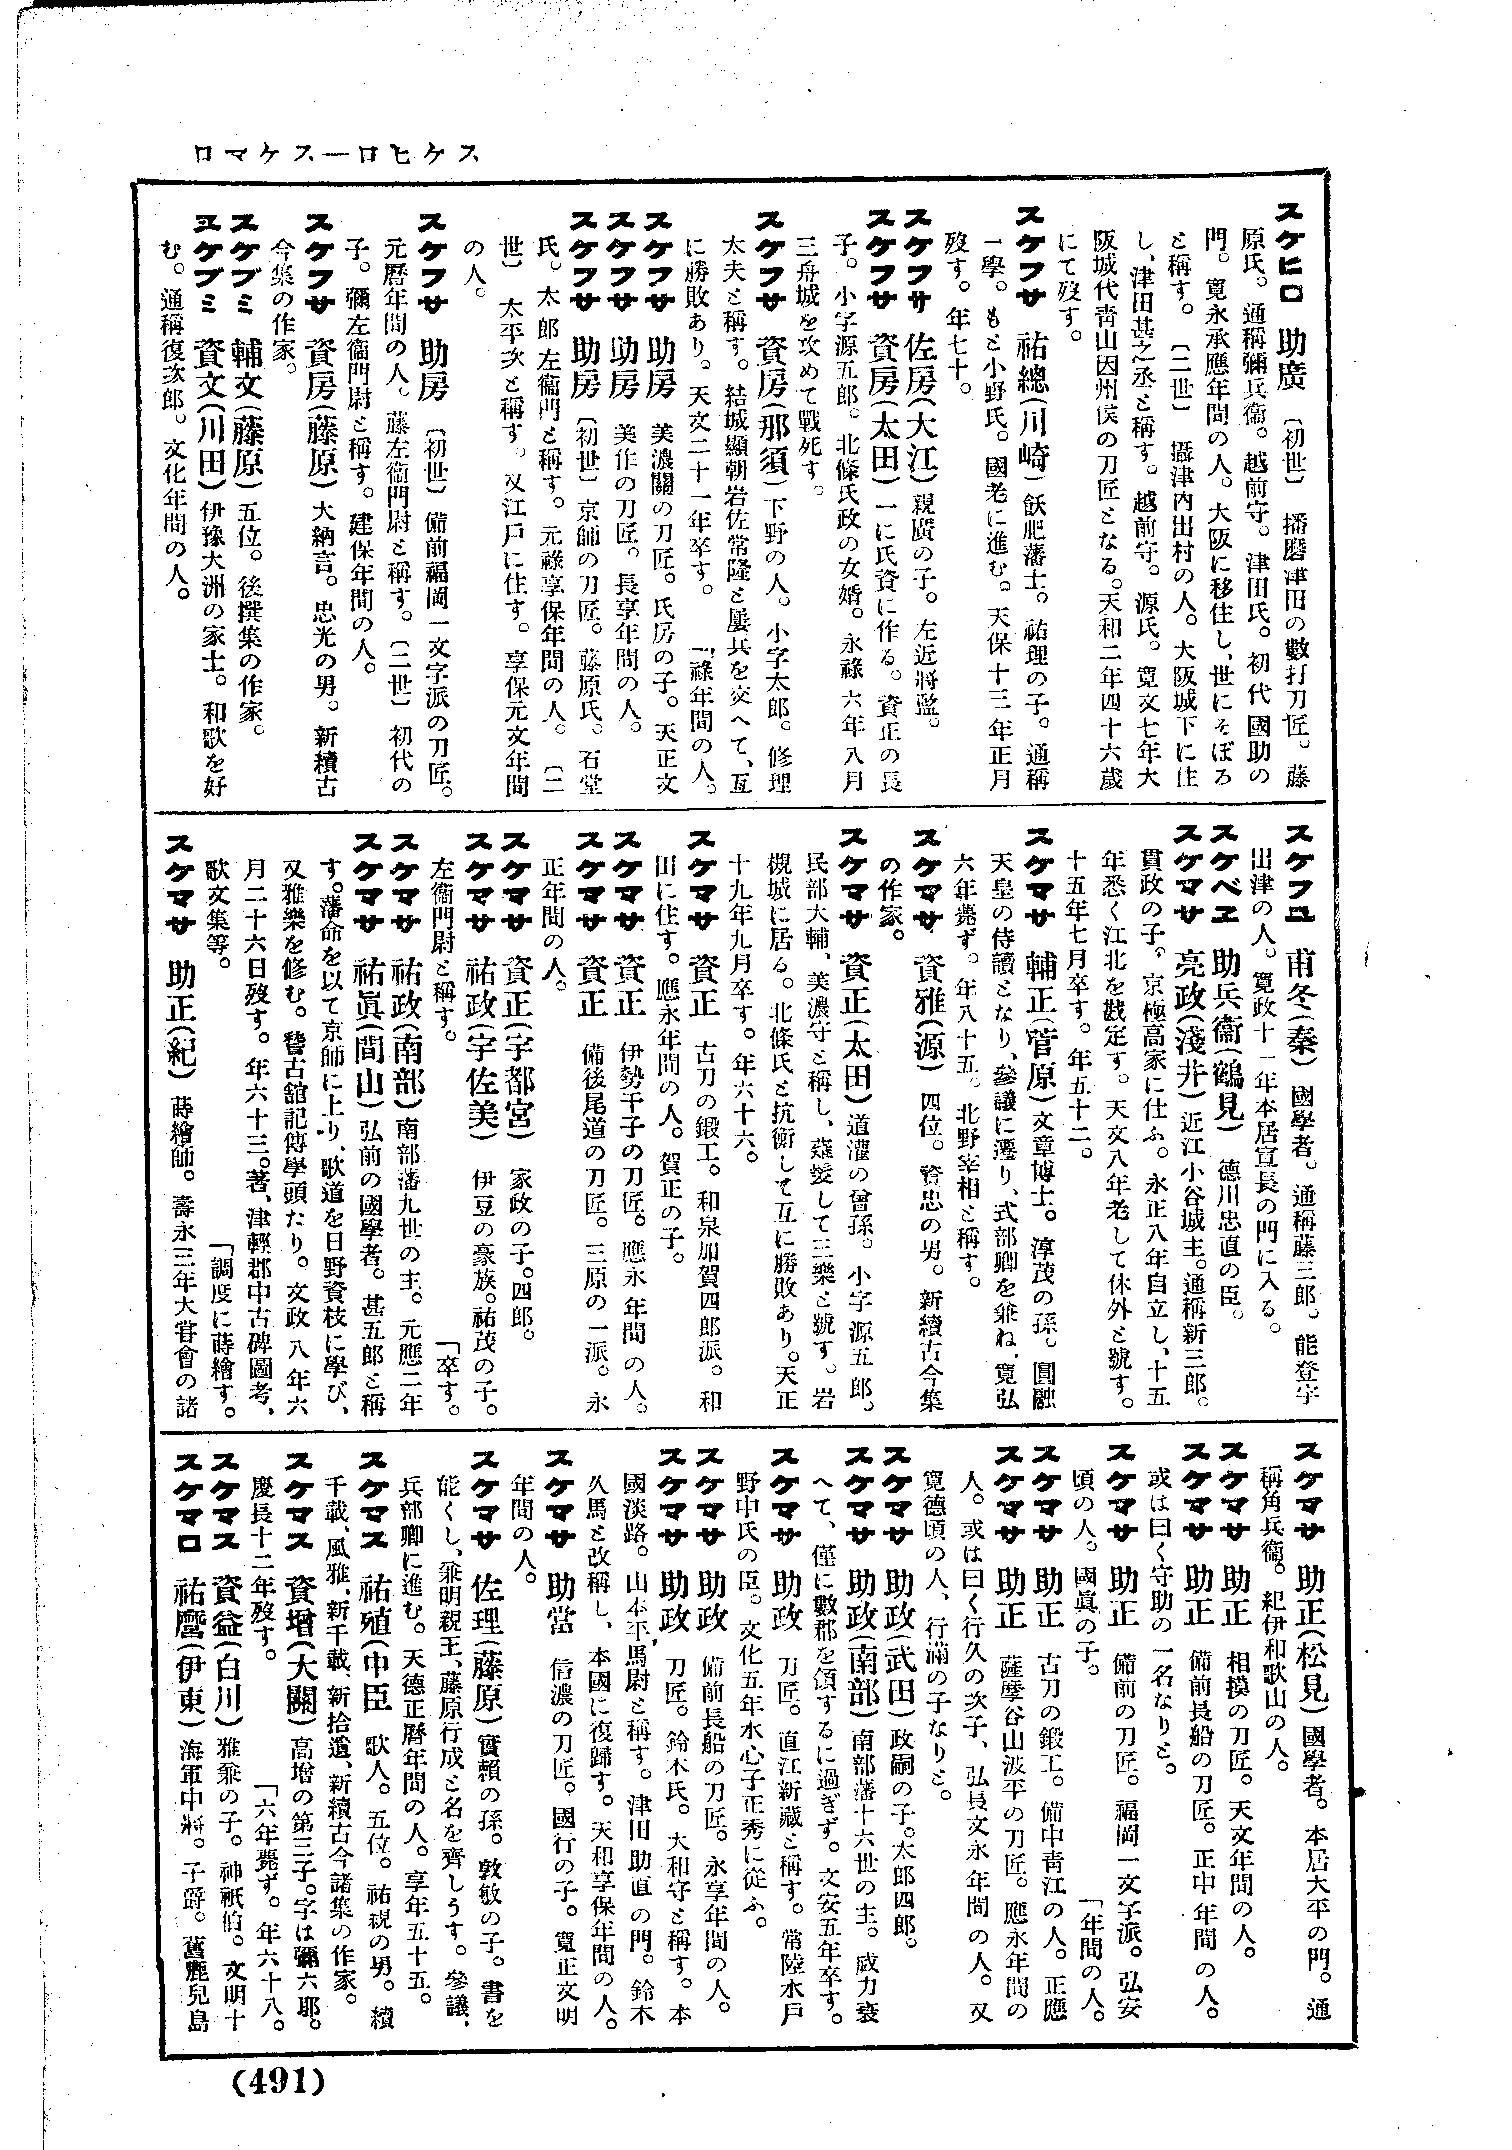 スケヒロ―スケマロ
スケヒロ 助廣 〔初世〕 播磨津田の數打刀匠。藤
原氏。通稱彌兵衞。越前守。津田氏。初代國助の
門。寬永承應年間の人。大阪に移住し、世にそぼろ
と稱す。〔二世〕 攝津內出村の人。大阪城下に住
し、津田甚之丞と稱す。越前守。源氏。寬文七年大
阪城代靑山因州侯の刀匠となる。天和二年四十六歲
にて歿す。
スケフサ 祐總(川崎) 飫肥藩士。祐理の子。通稱
一學。もと小野氏。國老に進む。天保十三年正月
歿す。年七十。
スケフサ 佐房(大江) 親廣の子。左近將監。
スケフサ 資房(太田) 一に氏資に作る。資正の長
子。小字源五郎。北條氏政の女婿。永祿六年八月
三舟城を攻めて戰死す。
スケフサ 資房(那須) 下野の人。小字太郎。修理
太夫と稱す。結城顯朝岩佐常隆と屢兵を交へて、互
に勝敗あり。天文二十一年卒す。 「祿年間の人。
スケフサ 助房 美濃關の刀匠。氏房の子。天正文
スケフサ 助房 美作の刀匠。長享年間の人。
スケフサ 助房 〔初世〕 京師の刀匠。藤原氏。石堂
氏。太郎左衞門と稱す。元祿享保年間の人。〔二
世〕 太平次と稱す。又江戶に住す。享保元文年間
の人。
スケフサ 助房 〔初世〕 備前福岡一文字派の刀匠。
元曆年間の人。藤左衞門尉と稱す。〔二世〕 初代の
子。彌左衞門尉と稱す。建保年間の人。
スケフサ 資房(藤原) 大納言。忠光の男。新續古
今集の作家。
スケブミ 輔文(藤原) 五位。後撰集の作家。
スケブミ 資文(川田) 伊豫大洲の家士。和歌を好
む。通稱復次郎。文化年間の人。
スケフユ 甫冬(秦) 國學者。通稱藤三郎。能登字
出津の人。寬政十一年本居宣長の門に入る。
スケベヱ 助兵衞(鶴見) 德川忠直の臣。
スケマサ 亮政(淺井) 近江小谷城主。通稱新三郎。
貫政の子。京極高家に仕ふ。永正八年自立し、十五
年悉く江北を戡定す。天文八年老して休外と號す。
十五年七月卒す。年五十二。
スケマサ 輔正(菅原) 文章博士。淳茂の孫。圓融
天皇の侍讀となり、參議に遷り、式部卿を兼ね、寬弘
六年薨ず。年八十五。北野宰相と稱す。
スケマサ 資雅(源) 四位。資忠の男。新續古今集
の作家。
スケマサ 資正(太田) 道灌の曾孫。小字源五郎。
民部大輔、美濃守と稱し、薙髮して三樂と號す。岩
槻城に居る。北條氏と抗衡して互に勝敗あり。天正
十九年九月卒す。年六十六。
スケマサ 資正 古刀の鍛工。和泉加賀四郎派。和
田に住す。應永年間の人。賀正の子。
スケマサ 資正 伊勢千子の刀匠。應永年間の人。
スケマサ 資正 備後尾道の刀匠。三原の一派。永
正年間の人。
スケマサ 資正(宇都宮) 家政の子。四郎。
スケマサ 祐政(宇佐美) 伊豆の豪族。祐茂の子。
左衞門尉と稱す。 「卒す。
スケマサ 祐政(南部) 南部藩九世の主。元應二年
スケマサ 祐眞(間山) 弘前の國學者。甚五郎と稱
す。藩命を以て京師に上り、歌道を日野資枝に學び、
又雅樂を修む。稽古舘記傳學頭たり。文政八年六
月二十六日歿す。年六十三。著、津輕郡中古碑圖考、
歌文集等。 「調度に蒔繪す。
スケマサ 助正(紀) 蒔繪師。壽永三年大甞會の諸
スケマサ 助正(松見) 國學者。本居大平の門。通
稱角兵衞。紀伊和歌山の人。
スケマサ 助正 相摸の刀匠。天文年間の人。
スケマサ 助正 備前長船の刀匠。正中年間の人。
或は曰く守助の一名なりと。
スケマサ 助正 備前の刀匠。福岡一文字派。弘安
頃の人。國眞の子。 「年間の人。
スケマサ 助正 古刀の鍛工。備中靑江の人。正應
スケマサ 助正 薩摩谷山波平の刀匠。應永年間の
人。或は曰く行久の次子、弘長文永年間の人。又
寬德頃の人、行滿の子なりと。
スケマサ 助政(武田) 政嗣の子。太郎四郎。
スケマサ 助政(南部) 南部藩十六世の主。威力衰
へて、僅に數郡を領するに過ぎず。文安五年卒す。
スケマサ 助政 刀匠。直江新藏と稱す。常陸水戶
野中氏の臣。文化五年水心子正秀に從ふ。
スケマサ 助政 備前長船の刀匠。永享年間の人。
スケマサ 助政 刀匠。鈴木氏。大和守と稱す。本
國淡路。山本平馬尉と稱す。津田助直の門。鈴木
久馬と改稱し、本國に復歸す。天和享保年間の人。
スケマサ 助當 信濃の刀匠。國行の子。寬正文明
年間の人。
スケマサ 佐理(藤原) 實賴の孫。敦敏の子。書を
能くし、兼明親王、藤原行成と名を齊しうす。參議、
兵部卿に進む。天德正曆年間の人。享年五十五。
スケマス 祐殖(中臣) 歌人。五位。祐視の男。續
千載、風雅、新千載、新拾遺、新續古今諸集の作家。
スケマス 資增(大關) 高增の第三子。字は彌六耶。
慶長十二年歿す。 「六年薨ず。年六十八。
スケマス 資益(白川) 雅兼の子。神祇伯。文明十
スケマロ 祐麿(伊東) 海軍中將。子爵。舊鹿兒島
(491)